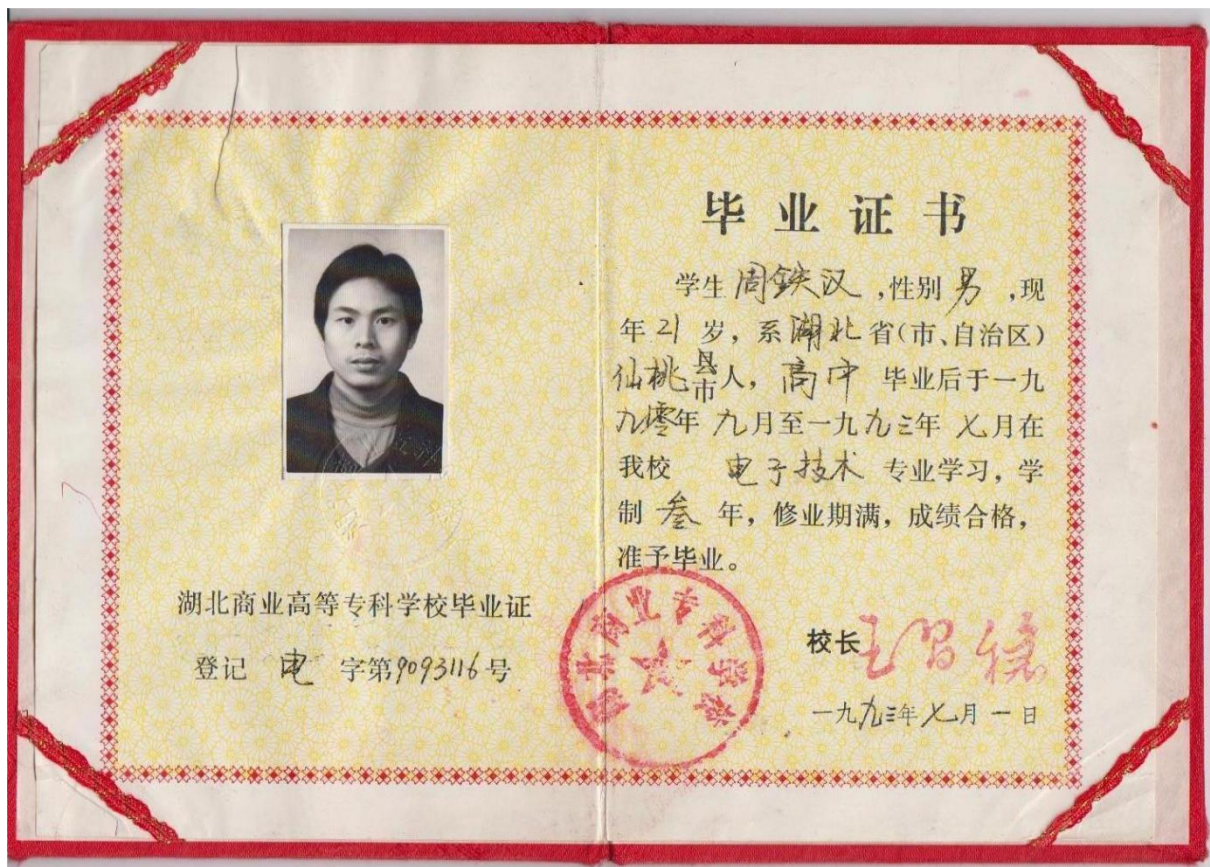 湖北商业高等专科学校毕业证
登记 电 字第9093116号
毕业证书
学生 周鉄汉 ,性别 男 ,现
年 21 岁，系 湖北 省(市、自治区)
仙桃县市人， 高中 毕业后于一九
九零年 九月至一九九三年 七月在
我校 电子技术 专业学习，学
制 叁 年，修业期满，成绩合格，
准予毕业。
湖北商业专科学校
校长
一九九三年七月一日